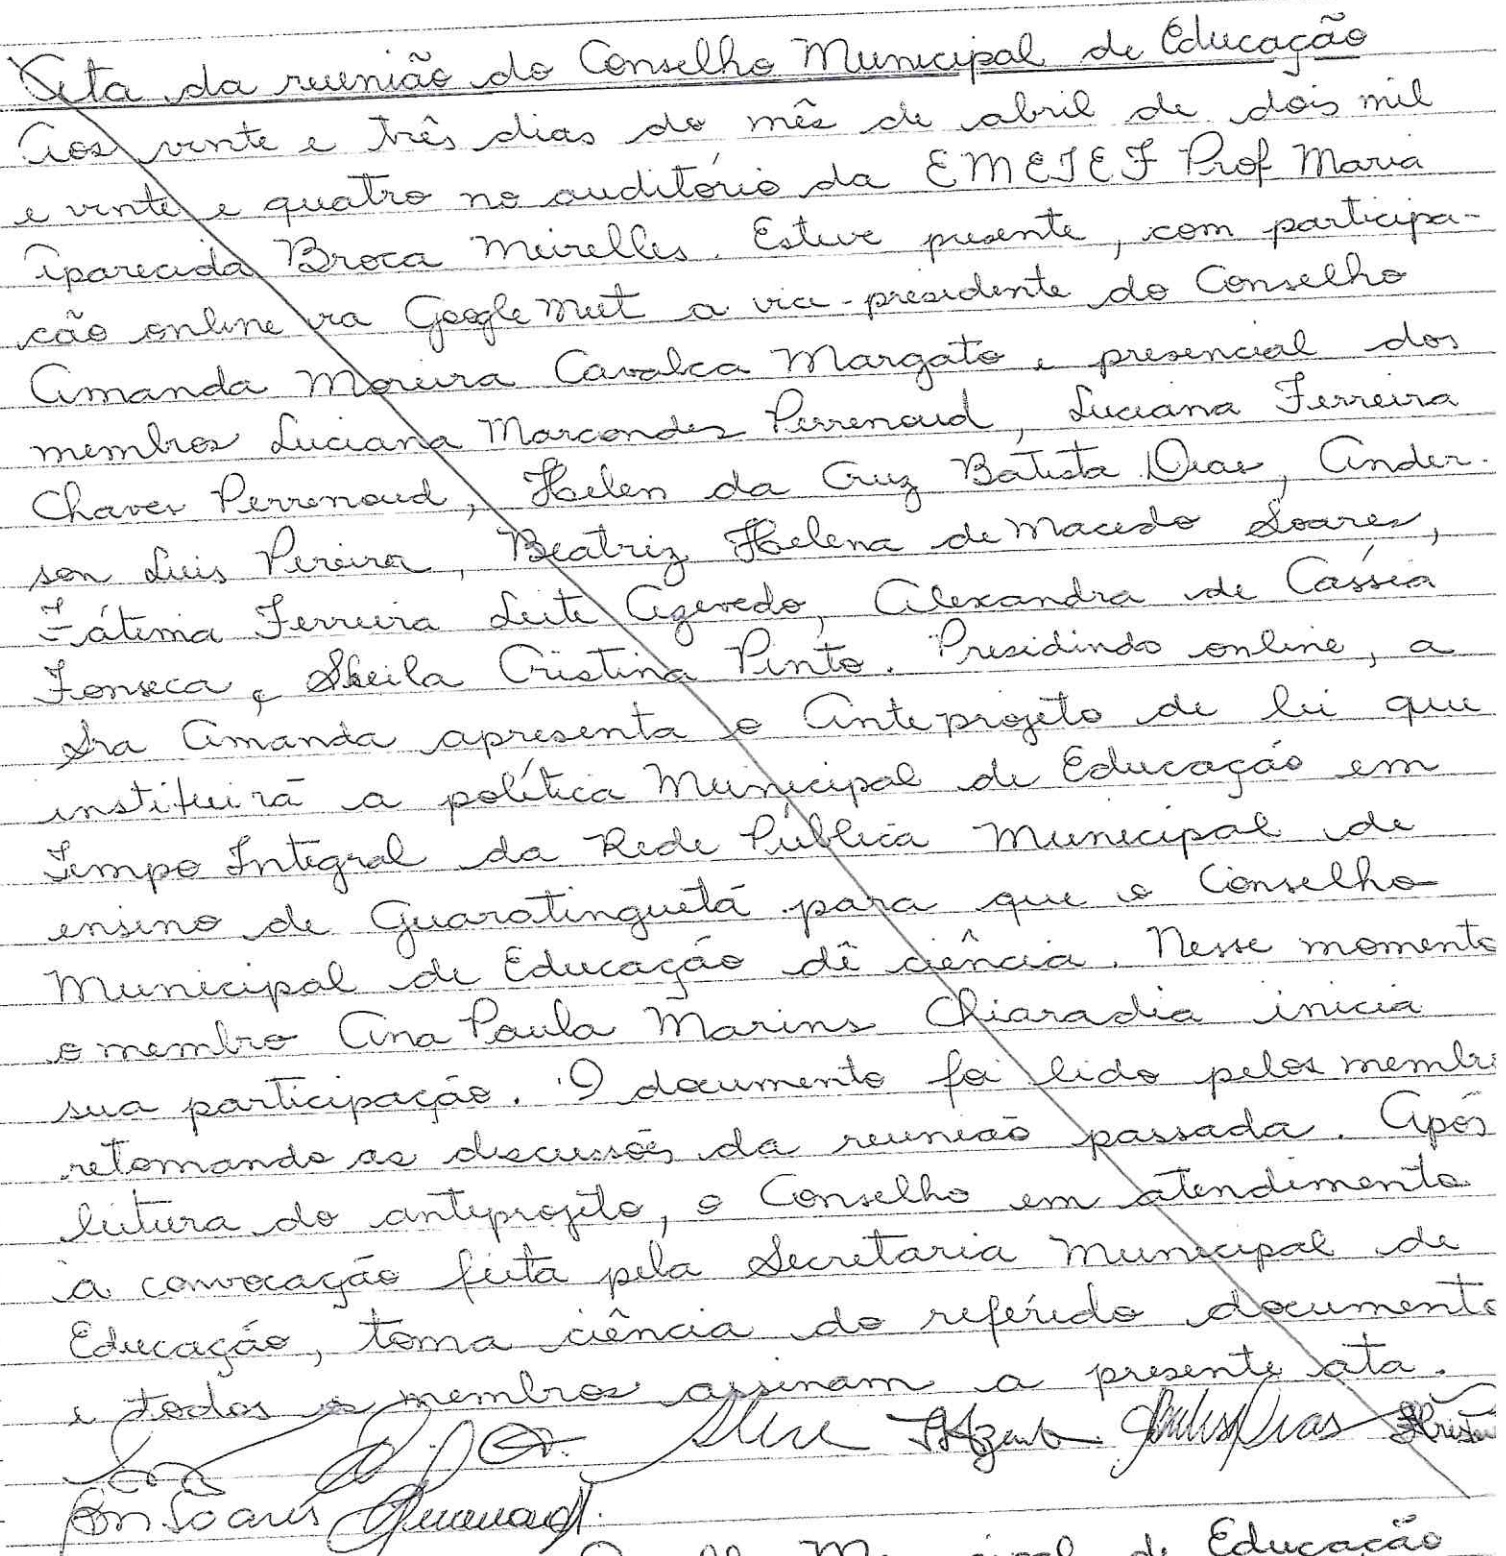 Ata da reunião do Conselho Municipal de Educação
Aos vinte e três dias do mês de abril de dois mil
e vinte e quatro no auditório da EMEIEF Prof Maria
Aparecida Broca Meirelles. Esteve presente, com participa-
ção online via Google Meet a vice-presidente do Conselho
Amanda Moreira Cavalca Margato e presencial dos
membros Luciana Marcondes Perrenoud, Luciana Ferreira
Chaves Perrenoud, Helen da Cruz Batista Dias, Ander-
son Luis Pereira, Beatriz Helena de Macedo Soares,
Fátima Ferreira Leite Azevedo, Alexandra de Cássia
Fonseca e Sheila Cristina Pinto. Presidindo online, a
Sra Amanda apresenta o Anteprojeto de lei que
instituirá a política Municipal de Educação em
Tempo Integral da Rede Pública Municipal de
ensino de Guaratinguetá para que o Conselho
Municipal de Educação dê ciência. Nesse momento
o membro Ana Paula Marins Chiaradia inicia
sua participação. O documento foi lido pelos membro
retomando as discussões da reunião passada. Após
leitura do anteprojeto, o Conselho em atendimento
a convocação feita pela Secretaria Municipal de
Educação, toma ciência do referido documento
e todos os membros assinam a presente ata.
Soares
de Educação